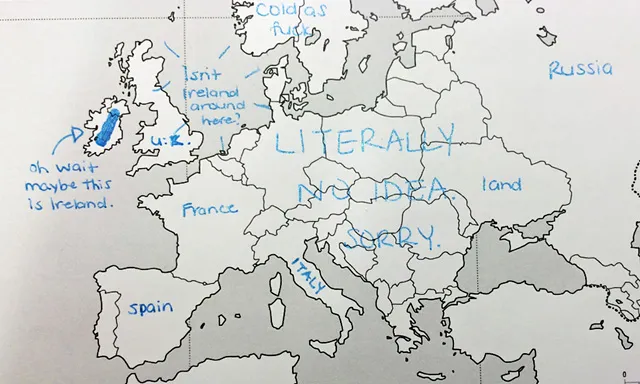 Cold as
fuck
Isn't
Ireland
around
here?
Russia
U.K.
oh wait
maybe this
is Ireland.
LITERALLY
NO IDEA.
SORRY.
land
France
ITALY
Spain